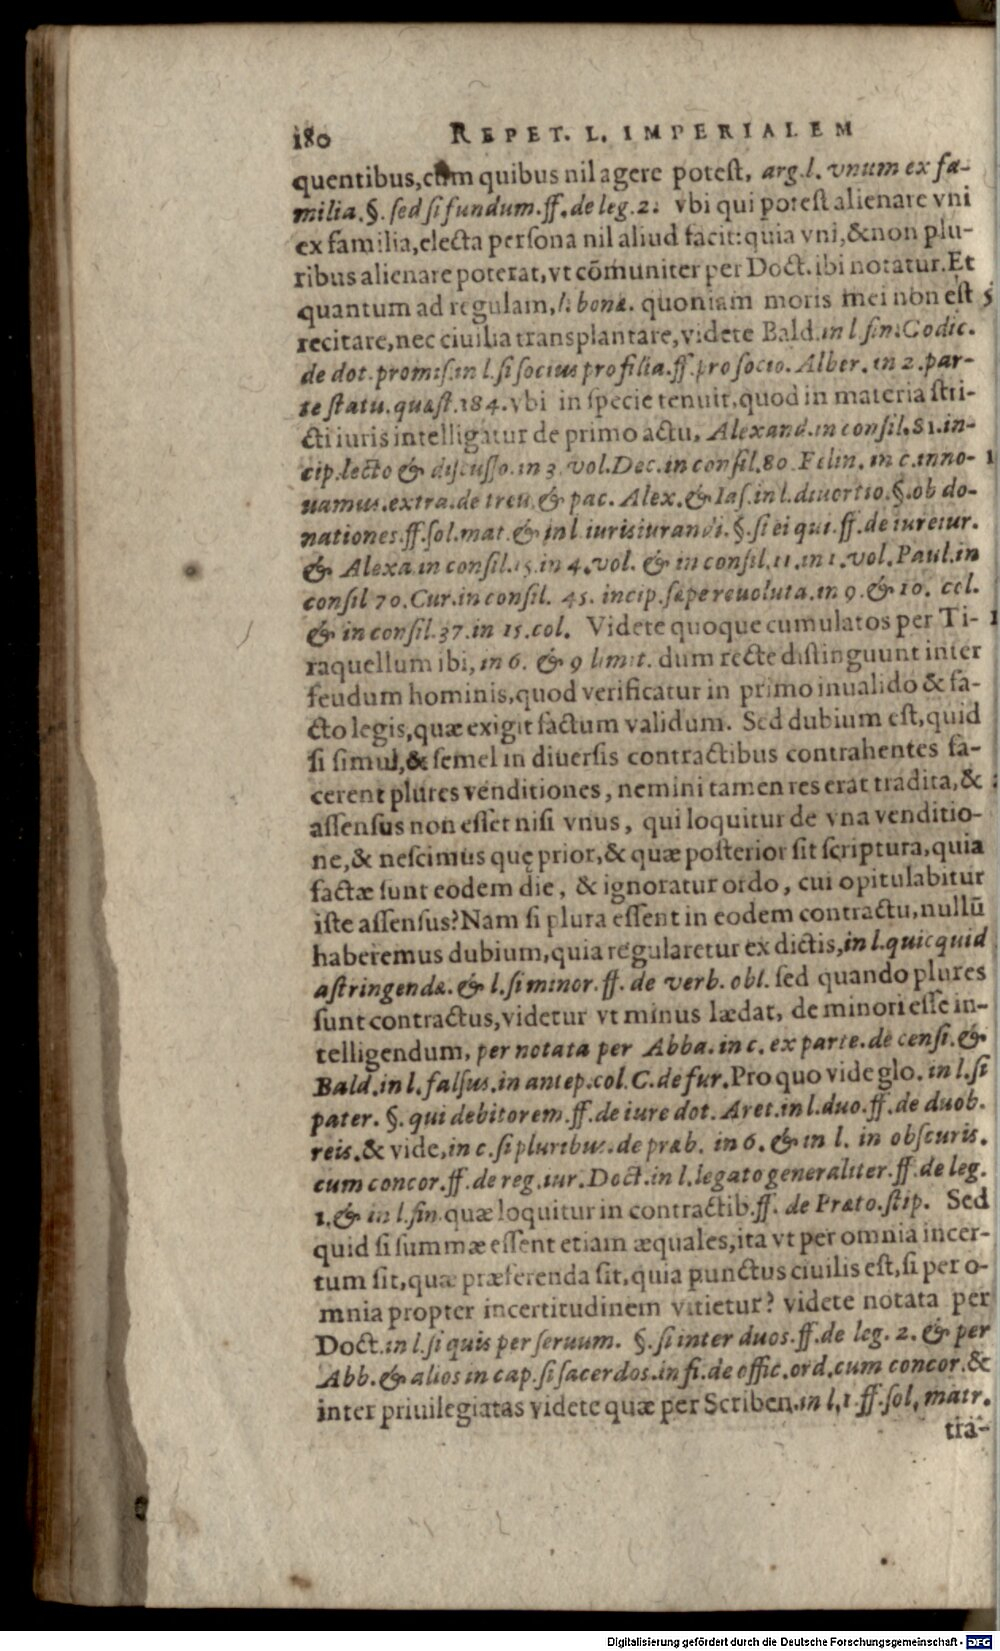 180 REPET. L. IMPERIALEM
quentibus, cum quibus nil agere potest, arg. l. vnum ex fa-
milia. §. sed si fundum. ff. de leg. 2. vbi qui potest alienare vni
ex familia, electa persona nil aliud facit: quia vni, & non plu-
ribus alienare poterat, vt cōmuniter per Doct. ibi notatur. Et
quantum ad regulam, l. bonæ. quoniam moris mei non est
recitare, nec ciuilia transplantare, videte Bald. in l. fin. Codic.
de dot. promis. in l. si socius pro filia. ff. pro socio. Alber. in 2. par-
te statu. quæst. 184. vbi in specie tenuit, quod in materia stri-
cti iuris intelligatur de primo actu, Alexand. in consil. 81. in-
cip. lecto & discusso. in 3. vol. Dec. in consil. 80. Felin. in c. inno-
uamus. extra. de treu. & pac. Alex. & Ias. in l. diuortio. §. ob do-
nationes. ff. sol. mat. & in l. iurisiurandi. §. si ei qui. ff. de iureiur.
& Alexa. in consil. 15. in 4. vol. & in consil. 11. in 1. vol. Paul. in
consil 70. Cur. in consil. 45. incip. sæpe reuoluta. in 9. & 10. col.
& in consil. 37. in 15. col. Videte quoque cumulatos per Ti-
raquellum ibi, in 6. & 9 limit. dum recte distinguunt inter
feudum hominis, quod verificatur in primo inualido & fa-
cto legis, quæ exigit factum validum. Sed dubium est, quid
si simul, & semel in diuersis contractibus contrahentes fa-
cerent plures venditiones, nemini tamen res erat tradita, &
assensus non esset nisi vnus, qui loquitur de vna venditio-
ne, & nescimus quę prior, & quæ posterior sit scriptura, quia
factæ sunt eodem die, & ignoratur ordo, cui opitulabitur
iste assensus? Nam si plura essent in eodem contractu, nullū
haberemus dubium, quia regularetur ex dictis, in l. quicquid
astringendæ. & l. si minor. ff. de verb. obl. sed quando plures
sunt contractus, videtur vt minus lædat, de minori esse in-
telligendum, per notata per Abba. in c. ex parte. de censi. &
Bald. in l. falsus. in antep. col. C. de fur. Pro quo vide glo. in l. si
pater. §. qui debitorem. ff. de iure dot. Aret. in l. duo. ff. de duob.
reis. & vide, in c. si pluribus. de præb. in 6. & in l. in obscuris.
cum concor. ff. de reg. iur. Doct. in l. legato generaliter. ff. de leg.
1. & in l. fin. quæ loquitur in contractib. ff. de Præto. stip. Sed
quid si summæ essent etiam æquales, ita vt per omnia incer-
tum sit, quæ præferenda sit, quia punctus ciuilis est, si per o-
mnia propter incertitudinem vitietur? videte notata per
Doct. in l. si quis per seruum. §. si inter duos. ff. de leg. 2. & per
Abb. & alios in cap. si sacerdos. in fi. de offic. ord. cum concor. &
inter priuilegiatas videte quæ per Scriben. in l. 1. ff. sol. matr.
tra-
Digitalisierung gefördert durch die Deutsche Forschungsgemeinschaft - DFG